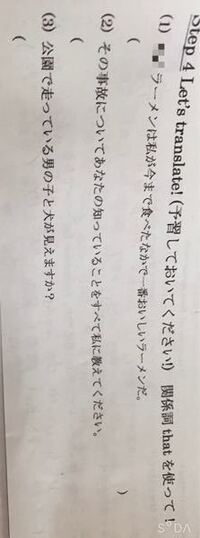 Step 4 Let's translate! (予習しておいてください!) 関係詞 that を使って
(1) ラーメンは私が今まで食べたなかで一番おいしいラーメンだ。
( )
(2) その事故についてあなたの知っていることをすべて私に教えてください。
(
(3) 公園で走っている男の子と犬が見えますか?
(
SODA